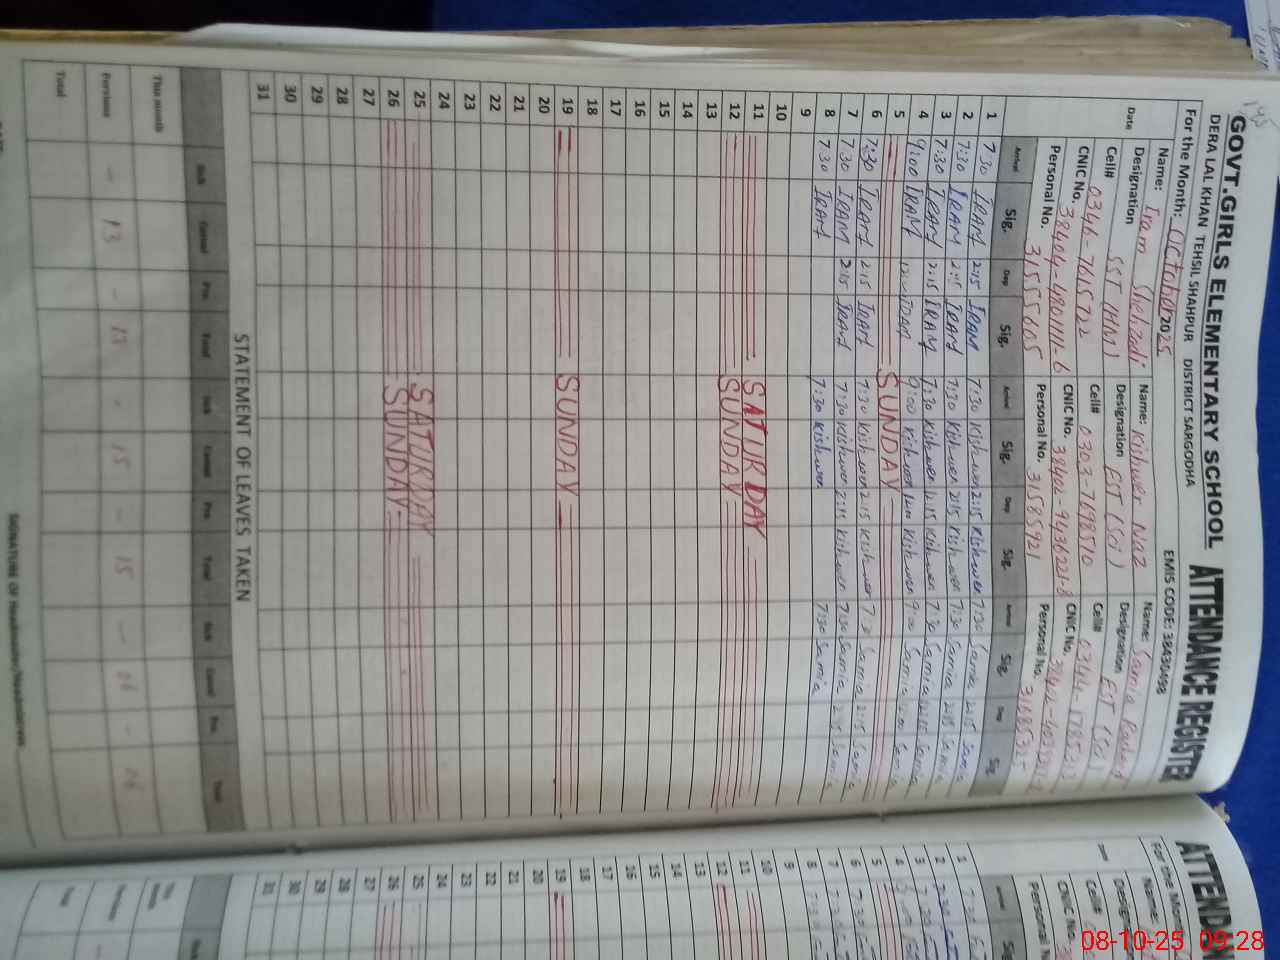 GOVT.GIRLS ELEMENTARY SCHOOL ATTENDANCE REGISTER
DERA LAL KHAN TEHSIL SHAHPUR DISTRICT SARGODHA EMIS CODE: 38430498
For the Month: October 2025
Name: Iram Shehzadi Name: Kishwer Naz Name: Samia
Designation SST (HM) Designation EST (Sci) Designation EST (Sci)
Cell# 0346-7615722 Cell# 0303-7698510 Cell#
CNIC No. 38404-4801111-6 CNIC No. 38402-9436221-8 CNIC No.
Personal No. 31555605 Personal No. 31585921 Personal No.
Date Arrival Sig. Dep Sig. Arrival Sig. Dep Sig. Arrival Sig. Dep Sig.
1 7:30 IRAM 2:15 IRAM 7:30 Kishwer 2:15 Kishwer 7:30 Samia 2:15 Samia
2 7:30 IRAM 2:15 IRAM 7:30 Kishwer 2:15 Kishwer 7:30 Samia 2:15 Samia
3 7:30 IRAM 2:15 IRAM 7:30 Kishwer 12:15 Kishwer 7:30 Samia 12:15 Samia
4 9:00 IRAM 12:00 IRAM 9:00 Kishwer 12:00 Kishwer 9:00 Samia 12:00 Samia
5 SUNDAY
6 7:30 IRAM 2:15 IRAM 7:30 Kishwer 2:15 Kishwer 7:30 Samia 2:15 Samia
7 7:30 IRAM 2:15 IRAM 7:30 Kishwer 2:15 Kishwer 7:30 Samia 2:15 Samia
8 7:30 IRAM 7:30 Kishwer 7:30 Samia
9
10
11 SATURDAY
12 SUNDAY
13
14
15
16
17
18
19 SUNDAY
20
21
22
23
24
25 SATURDAY
26 SUNDAY
27
28
29
30
31
STATEMENT OF LEAVES TAKEN
Sick Casual Pri. Total Sick Casual Pri. Total Sick Casual Pri. Total
This month
Pervious - 13 - 13 - 15 - 15 - 06 - 06
Total
SIGNATURE OF Headmaster/Headmistress
ATTEN
For the Mon
Name:
Design
Cell#
CNIC
Personal N
1
2
3
4
5
6
7
8
9
10
11
12
13
14
15
16
17
18
19
20
21
22
23
24
25
26
27
28
29
30
31
08-10-25 09:28